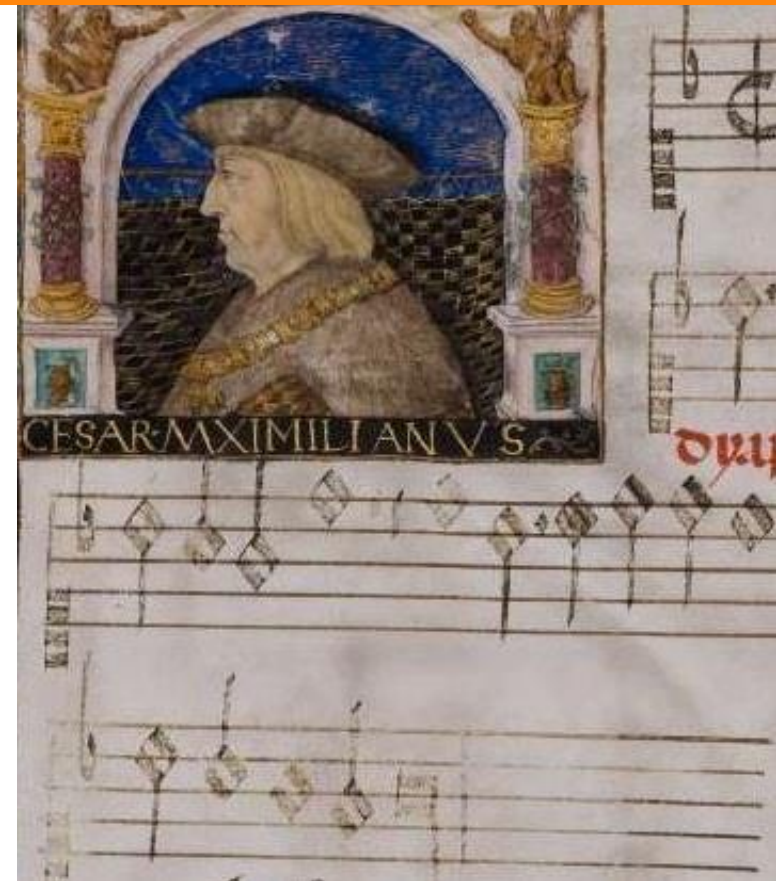 CESAR·MXIMILIANVS